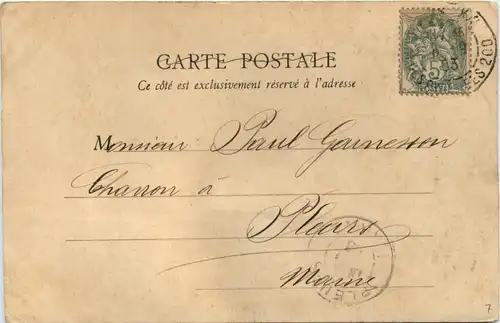 CARTE POSTALE
Ce côté est exclusivement réservé à l'adresse
Monsieur Paul Garnesson
Charron à
Pleurs
Marne
5
7